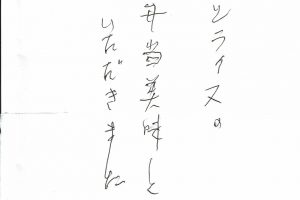 とライスの
弁当美味しく
いただきました